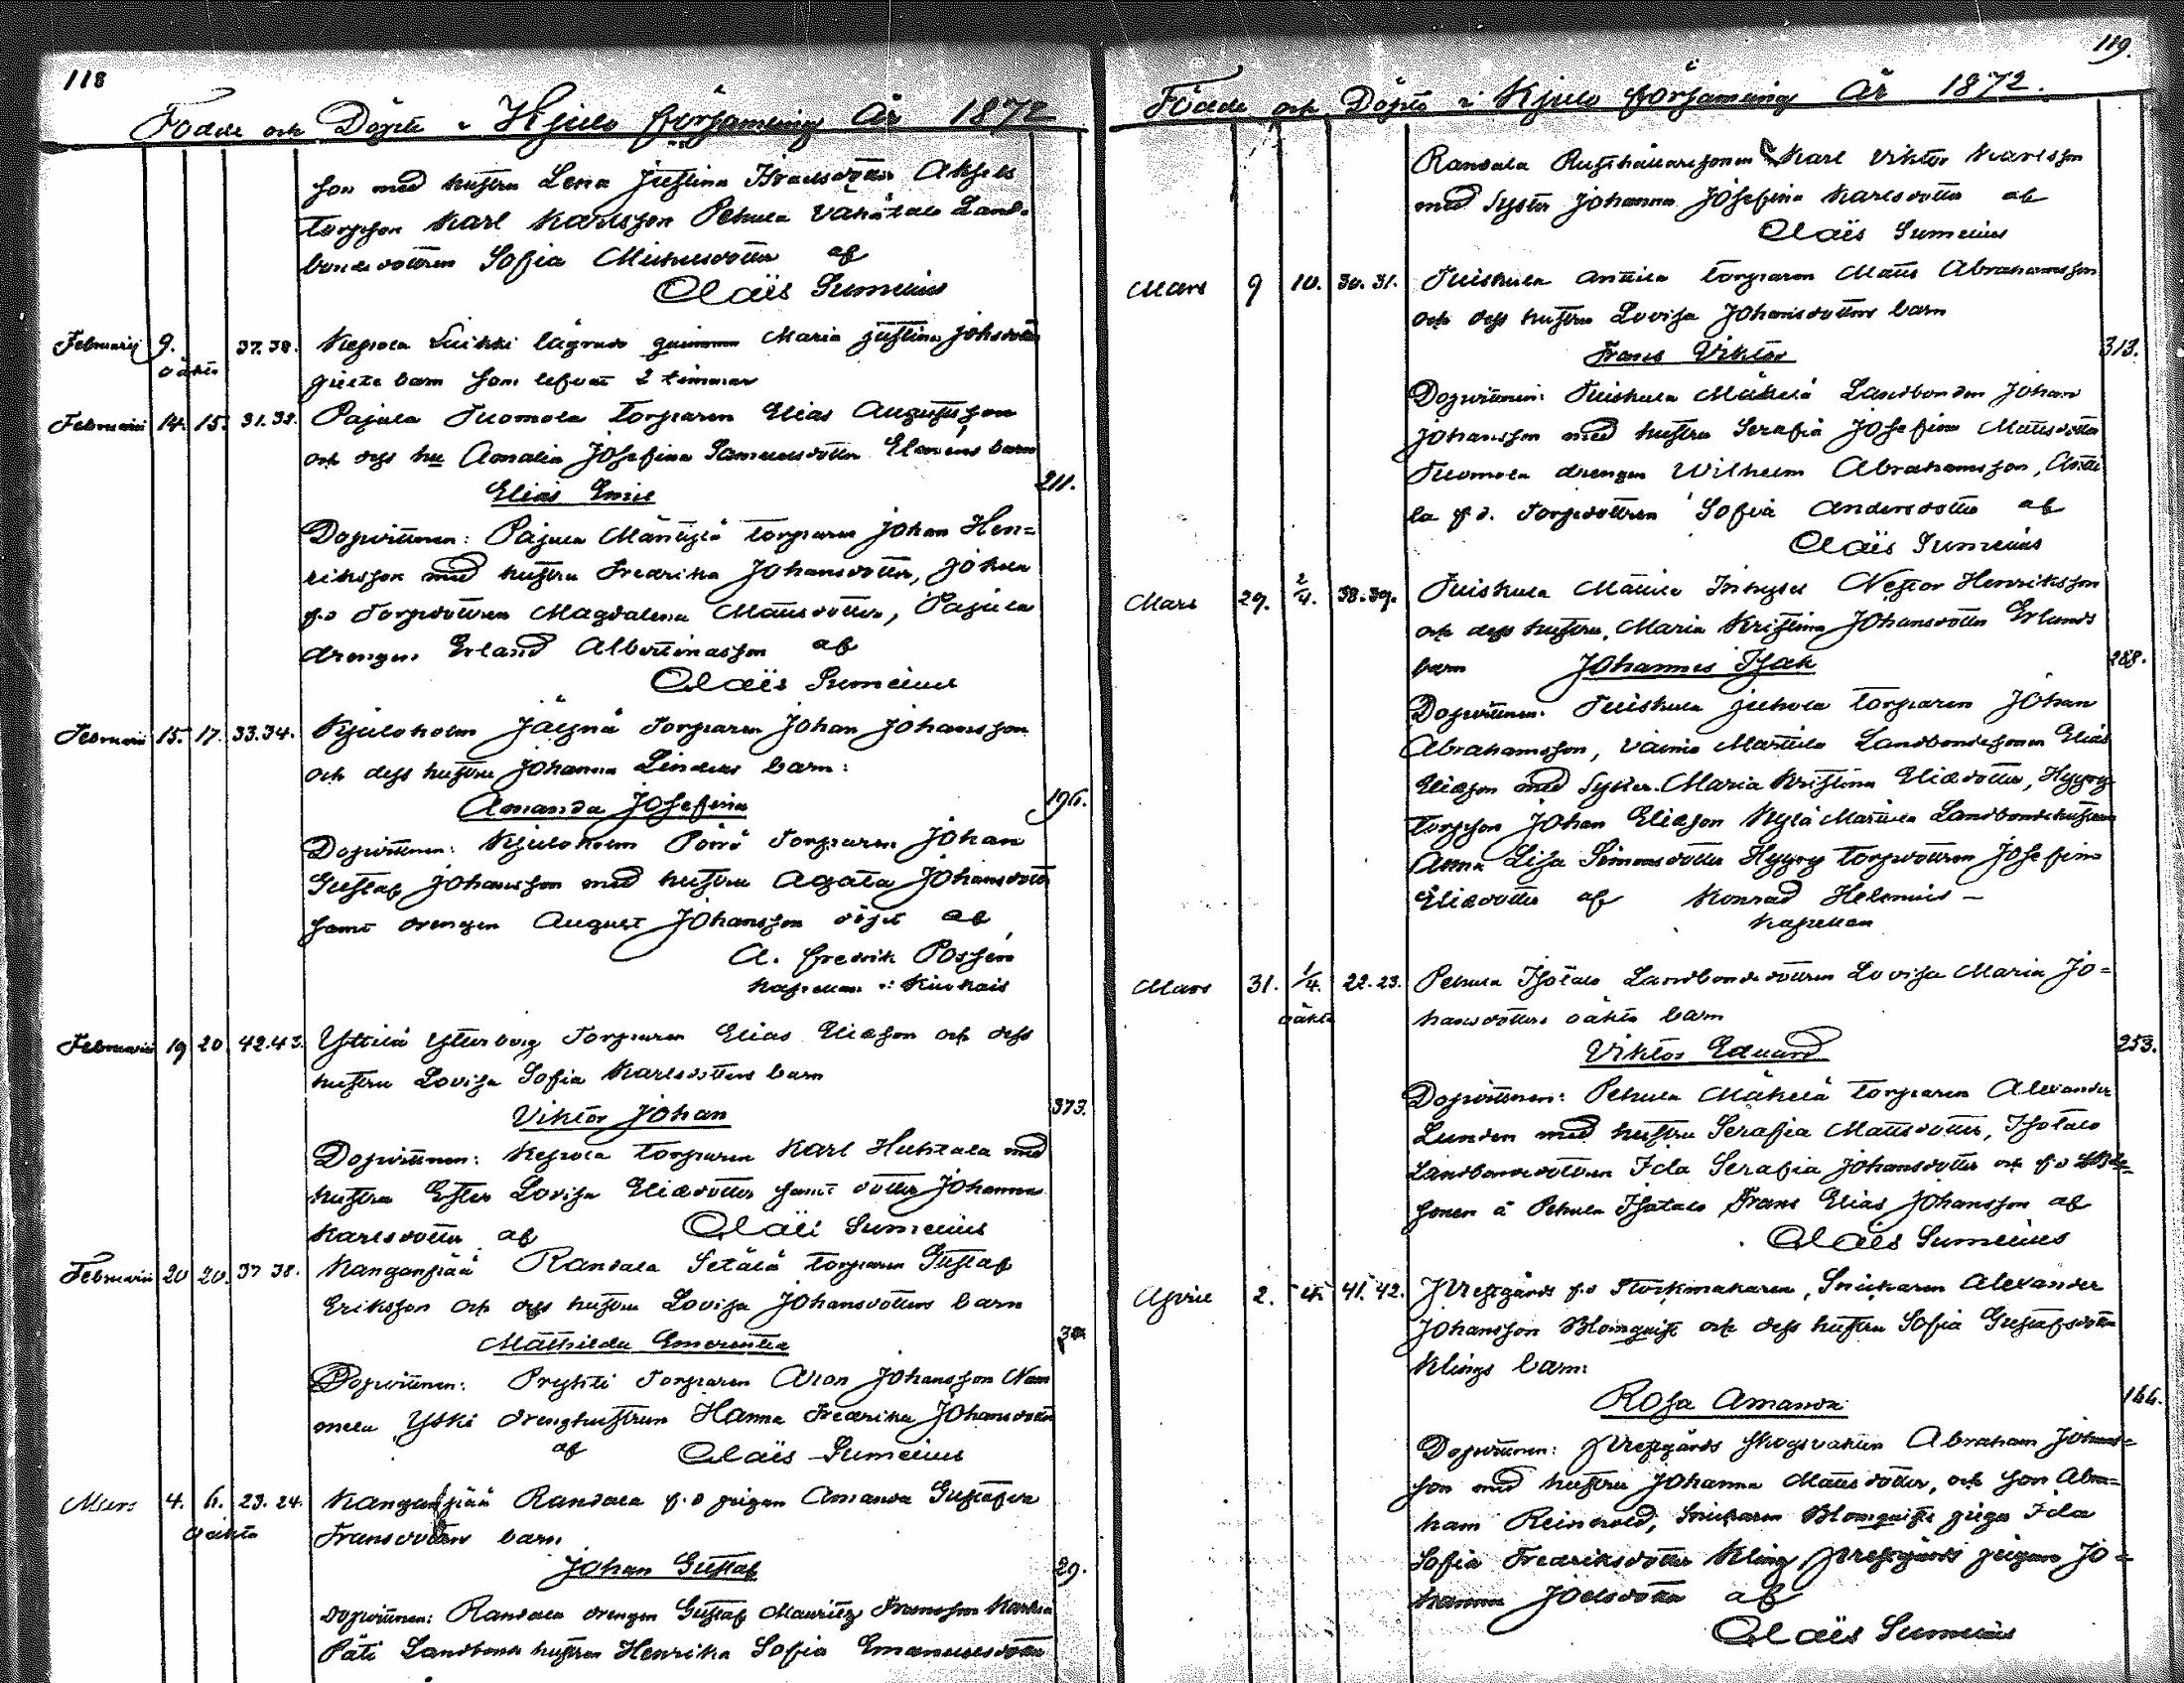 118
Födde och Döpte i Kjulo församling År 1872
son med hustru Lena Justina Israelsdotter
torpson Karl Karlsson Pehula Vähätalo Land-
bondedottren Sofia Michelsdotter af
Claës Sumelius
Februarii 9. 37.38. Kepola lägrade qvinnan Maria Justina Johsdotter
oäkta
barn som lefvat 2 timmar
Februarii 14. 15. 31.32. Pajula Tuomola torparen Elias Augustsson
och dess hu Amalia Josefina Samuelsdotter barn
Elias Emil 211.
Dopvittnen: Pajula Mäntylä torparen Johan Hen-
riksson med hustru Fredrika Johansdotter,
f.d Torpdottren Magdalena Mattsdotter, Pajula
drengen Erland Albertinasson af
Claës Sumelius
Februarii 15. 17. 33.34. Kjuloholm Torparen Johan Johansson
och dess hustru Johanna barn:
Amanda Josefina 196.
Dopvittnen: Kjuloholm Torparen Johan
Gustaf Johansson med hustru Agata Johansdotter
samt drengen August Johansson döpt af
A. Fredrik
kapellan i Kiukais
Februarii 19 20. 42.43. Yttilä Torparen Elias Eliæson och dess
hustru Lovisa Sofia Karlsdotters barn
Viktor Johan 373.
Dopvittnen: Kepola torparen Karl Huhtala med
hustru Ester Lovisa Eliædotter samt dotter Johanna
Karlsdotter af Claës Sumelius
Februarii 20 20. 37 38. Kanganpää Randala Setälä torparen Gustaf
Eriksson och dess hustru Lovisa Johansdotters barn
Mathilda Emerentia
Dopvittnen: Torparen Aron Johansson
Yski drenghustrun Hanna Fredrika Johansdotter
af Claës Sumelius
Mars 4. 6. 23. 24. Kanganpää Randala f.d pigan Amanda Gustafva
oäkta
Fransdotters barn
Johan Gustaf 29.
dopvittnen: Randala drengen Gustaf Mauritz Fransson
Päti Landbonde hustrun Henrika Sofia Emanuelsdotter
119.
Födde och Döpte i Kjulo församling År 1872.
Randala Rusthållaresonen Karl Viktor Karlsson
med Syster Johanna Josefina Karlsdotter af
Claës Sumelius
Mars 9 10. 30. 31. Tuiskula Anttila torparen Matts Abrahamsson
och dess hustru Lovisa Johansdotters barn
Frans Viktor 313.
Dopvittnen: Tuiskula Mäkelä Landbonden Johan
Johansson med hustru Serafia Josefina Mattsdotter
Tuomola drengen Wilhelm Abrahamsson, Antti-
la f.d. Torpdottren Sofia Andersdotter af
Claës Sumelius
Mars 29. 2/4. 38.39. Tuiskula Mattila Inhyses Nestor Henriksson
och dess hustru, Maria Kristina Johansdotter Erlunds
barn Johannes Isak 288.
Dopvittnen: Tuiskula Torparen Johan
Abrahamsson, Vainio Marttila Landbondesonen Elias
Eliæson med Syster Maria Kristina Eliædotter,
torpson Johan Eliæson Kylä Marttila Landbondehustrun
Anna Lisa Simonsdotter torpdottren Josefina
Eliædotter af Konrad Helenius
Kapellan
Mars 31. 1/4. 22.23. Pehula Isotalo Landbondedottren Lovisa Maria Jo-
oäkta
hansdotters oäkta barn
Viktor Eduard 253.
Dopvittnen: Pehula Mäkelä torparen Alexander
Lunden med hustru Serafia Mattsdotter, Isotalo
Landbondedottren Ida Serafia Johansdotter och f.d
sonen å Pehula Isotalo Frans Elias Johansson af
Claës Sumelius
April 2. 41. 42. Prestgårds f.d Stockmakaren, Snickaren Alexander
Johansson Blomquist och dess hustru Sofia Gustafsdotter
Klings barn:
Rosa Amanda 166.
Dopvittnen: Prestgårds skogsvakten Abraham Johans-
son med hustru Johanna Mattsdotter, och son Abra-
ham Reinhold, Snickaren Blomquists piga Ida
Sofia Fredriksdotter Kling Prestgårds pigan Jo-
hanna Joelsdotter af
Claës Sumelius